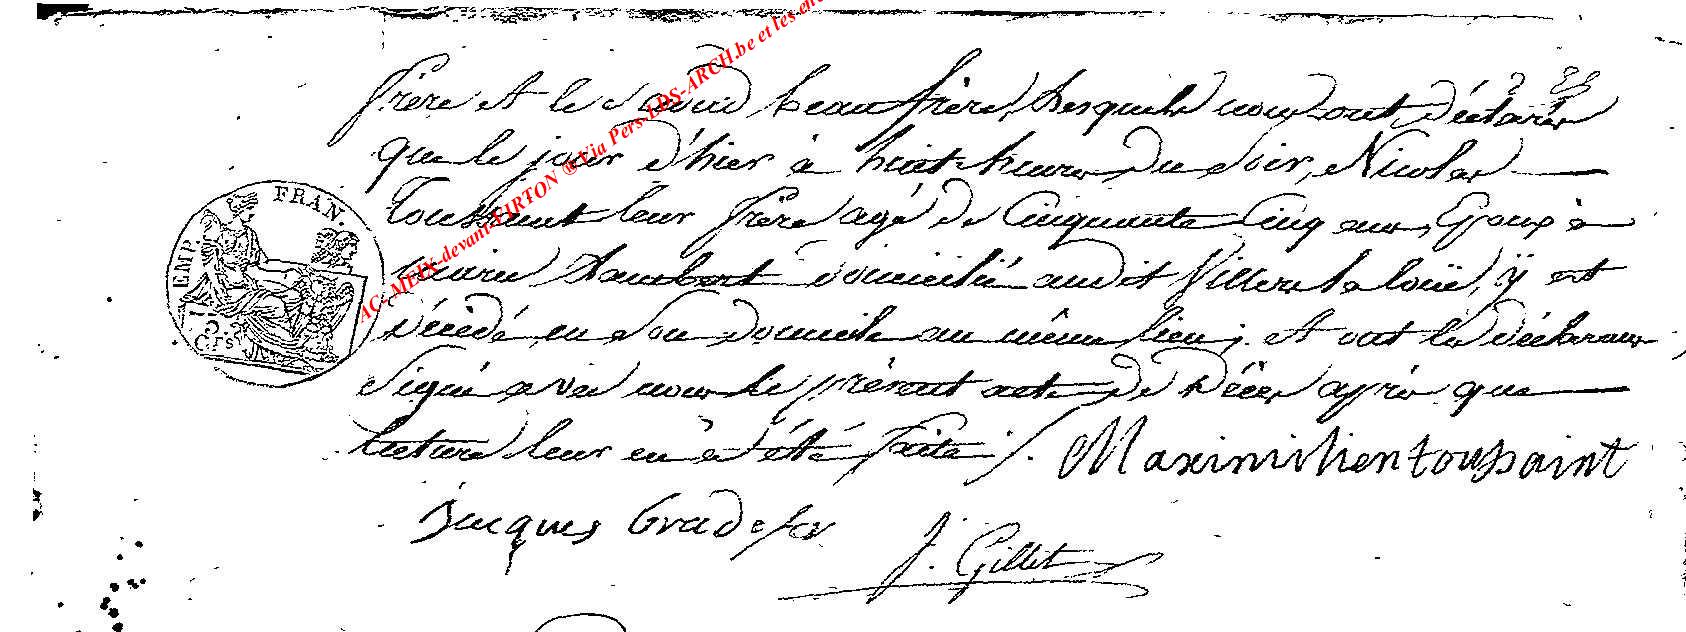 frère et le second beau frère, lesquels nous ont déclaré
que le jour d'hier à huit heures du soir, Nicolas
Toussaint leur frère agé de Cinquante Cinq ans, Epoux à
Marie Lambert domicilié audit Villers la loüe, ÿ est
décédé en son domicile au même lieu; et ont les déclarans
signé avec nous le présent acte de Décès après que
lecture leur en a été faite /.
Maximilien toussaint
Jacques Gradefor
J. Gillet
EMP. FRAN.
Crs
AC-MEIX-devant-VIRTON ® Via Pers-LDS-ARCH.be et les